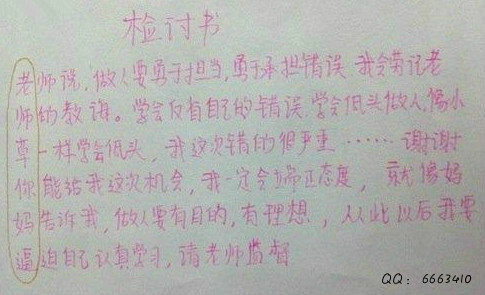 检讨书
老师说，做人要勇于担当，勇于承担错误 我会荣记老
师的教诲。学会反省自己的错误，学会低头做人，像小
草一样学会低头，我这次错的很严重……谢谢
你能给我这次机会，我一定会端正态度，就像妈
妈告诉我，做人要有目的，有理想，从此以后我要
逼迫自己认真学习，请老师监督
QQ：6663410